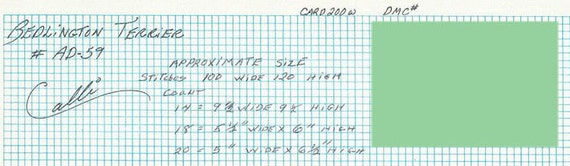 CARD 200W DMC#
BEDLINGTON TERRIER
# AD-59
APPROXIMATE SIZE
STITCHES 100 WIDE 120 HIGH
COUNT
Calli
14 = 9 1/2 WIDE 9 1/2 HIGH
18 = 5 1/2" WIDE X 6" HIGH
20 = 5" WIDE X 6 1/2" HIGH